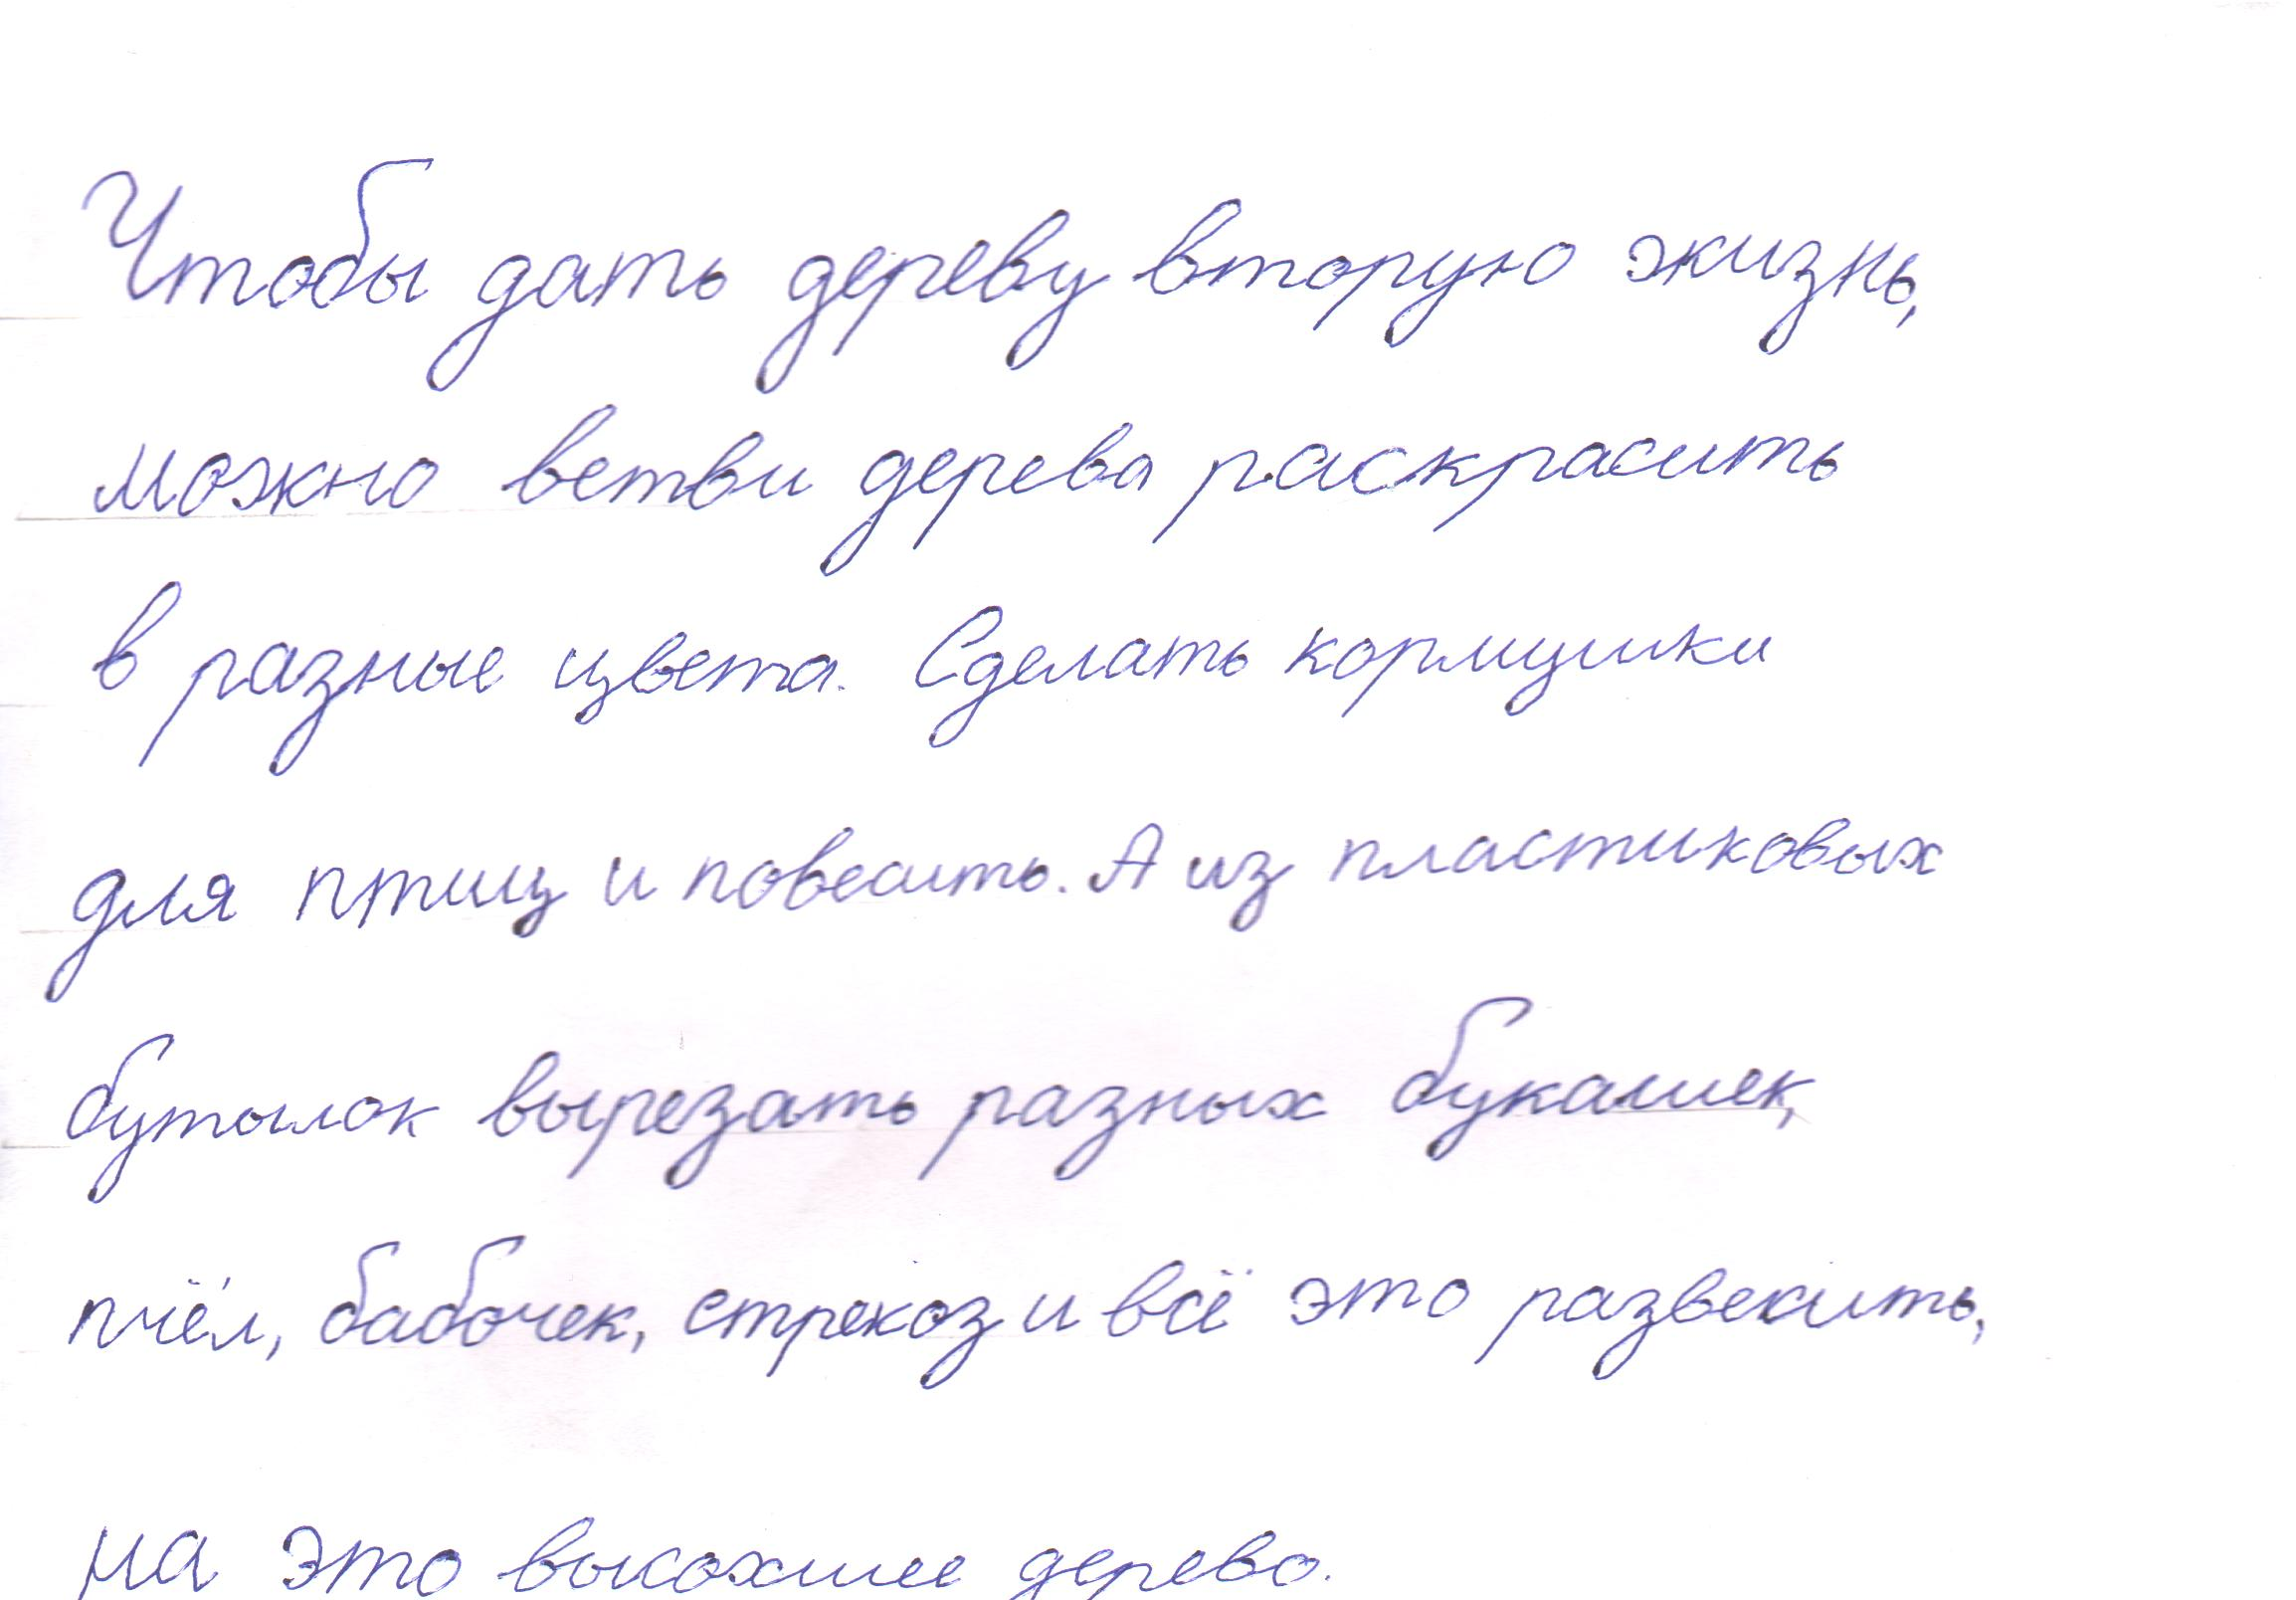 Чтобы дать дереву вторую жизнь,
можно ветви дерева раскрасить
в разные цвета. Сделать кормушки
для птиц и повесить. А из пластиковых
бутылок вырезать разных букашек,
пчёл, бабочек, стрекоз и всё это развесить,
на это высохшее дерево.